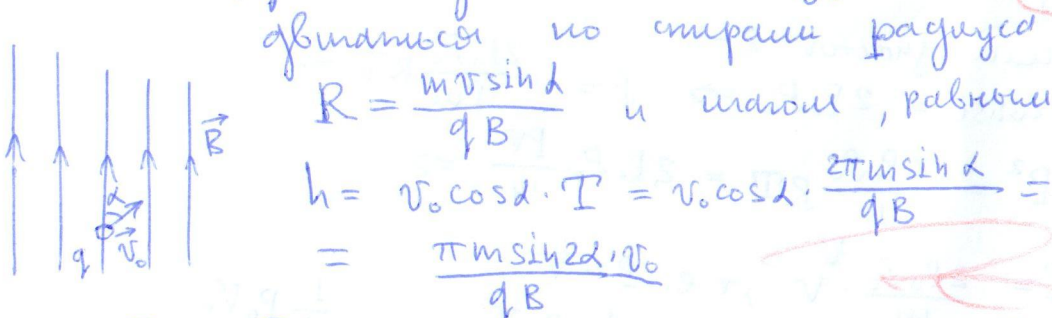 двигаться по спирали радиуса
R = \frac{mv sin α}{qB} и шагом, равным
B⃗
h = v₀cosα · T = v₀cosα · \frac{2πm sin α}{qB} =
α
q v⃗₀
= \frac{πm sin2α · v₀}{qB}